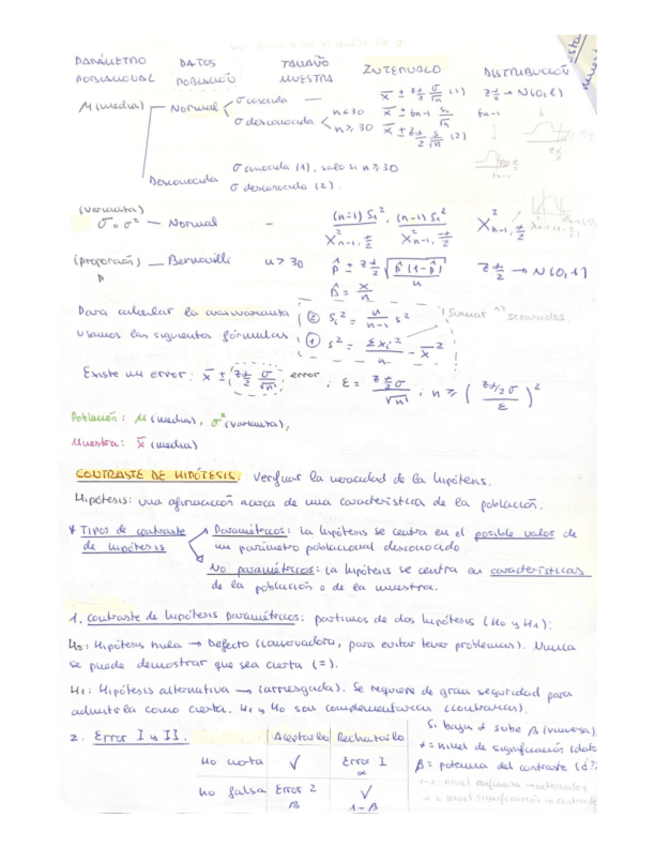 PARÁMETRO POBLACIONAL DATOS POBLACIÓN TAMAÑO MUESTRA INTERVALO DISTRIBUCIÓN
μ (media) Normal σ conocida — x̄ ± z α/2 σ/√n (1) z α/2 → N(0,1)
σ desconocida n<30 x̄ ± t n-1 s₁/√n t n-1
n≥30 x̄ ± z α/2 s/√n (2)
Desconocida σ conocida (1), solo si n≥30
σ desconocida (2).
(varianza) σ o σ² — Normal - (n-1) S₁² / X² n-1, α/2 , (n-1) S₁² / X² n-1, α/2 X² n-1, α/2
(proporción) p — Bernoulli n > 30 p̂ ± z α/2 √(p̂(1-p̂)/n) z α/2 → N(0,1)
p̂ = x/n
Para calcular la cuasivarianza ② s₁² = n/(n-1) s² Sumar separados.
usamos las siguientes fórmulas ① s² = Σxᵢ²/n - x̄²
Existe un error: x̄ ± z α/2 σ/√n error ; ε = z α/2 σ/√n ; n ≥ (z α/2 σ/ε)²
Población: μ (media), σ² (varianza),
Muestra: x̄ (media)
CONTRASTE DE HIPÓTESIS. Verificar la veracidad de la hipótesis.
Hipótesis: una afirmación acerca de una característica de la población.
* Tipos de contraste de hipótesis
Paramétricos: la hipótesis se centra en el posible valor de
un parámetro poblacional desconocido
No paramétricos: la hipótesis se centra en características
de la población o de la muestra.
1. Contraste de hipótesis paramétricos: partimos de dos hipótesis (H₀ y H₁):
H₀: Hipótesis nula → Defecto (conservadora, para evitar tener problemas). Nunca
se puede demostrar que sea cierta (=).
H₁: Hipótesis alternativa → (arriesgada). Se requiere de gran seguridad para
admitirla como cierta. H₁ y H₀ son complementarias (contrarias).
2. Error I y II.
Aceptarlo Rechazarlo
H₀ cierta ✓ Error I α
H₀ falsa Error 2 β ✓ 1-β
Si baja α sube β (viceversa)
α = nivel de significación (dato
β = potencia del contraste
nivel confianza → intervalos
α = nivel significación → contraste